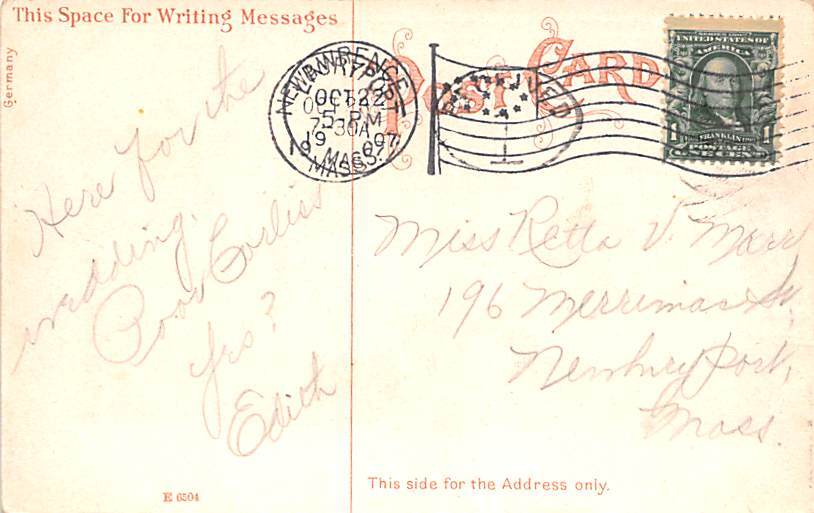 This Space For Writing Messages
Germany
Here for the
wedding.
Poor Corliss
Yrs?
Edith
E 6504
POST CARD
NEWBURYPORT
LAWRENCE
OCT 22
5 PM
7-30A
MASS.
RECEIVED
1
SERIES 1902
UNITED STATES OF
AMERICA
FRANKLIN
POSTAGE
1 1
Miss Retta V. Marr
196 Merrimac St,
Newburyport,
Mass.
This side for the Address only.